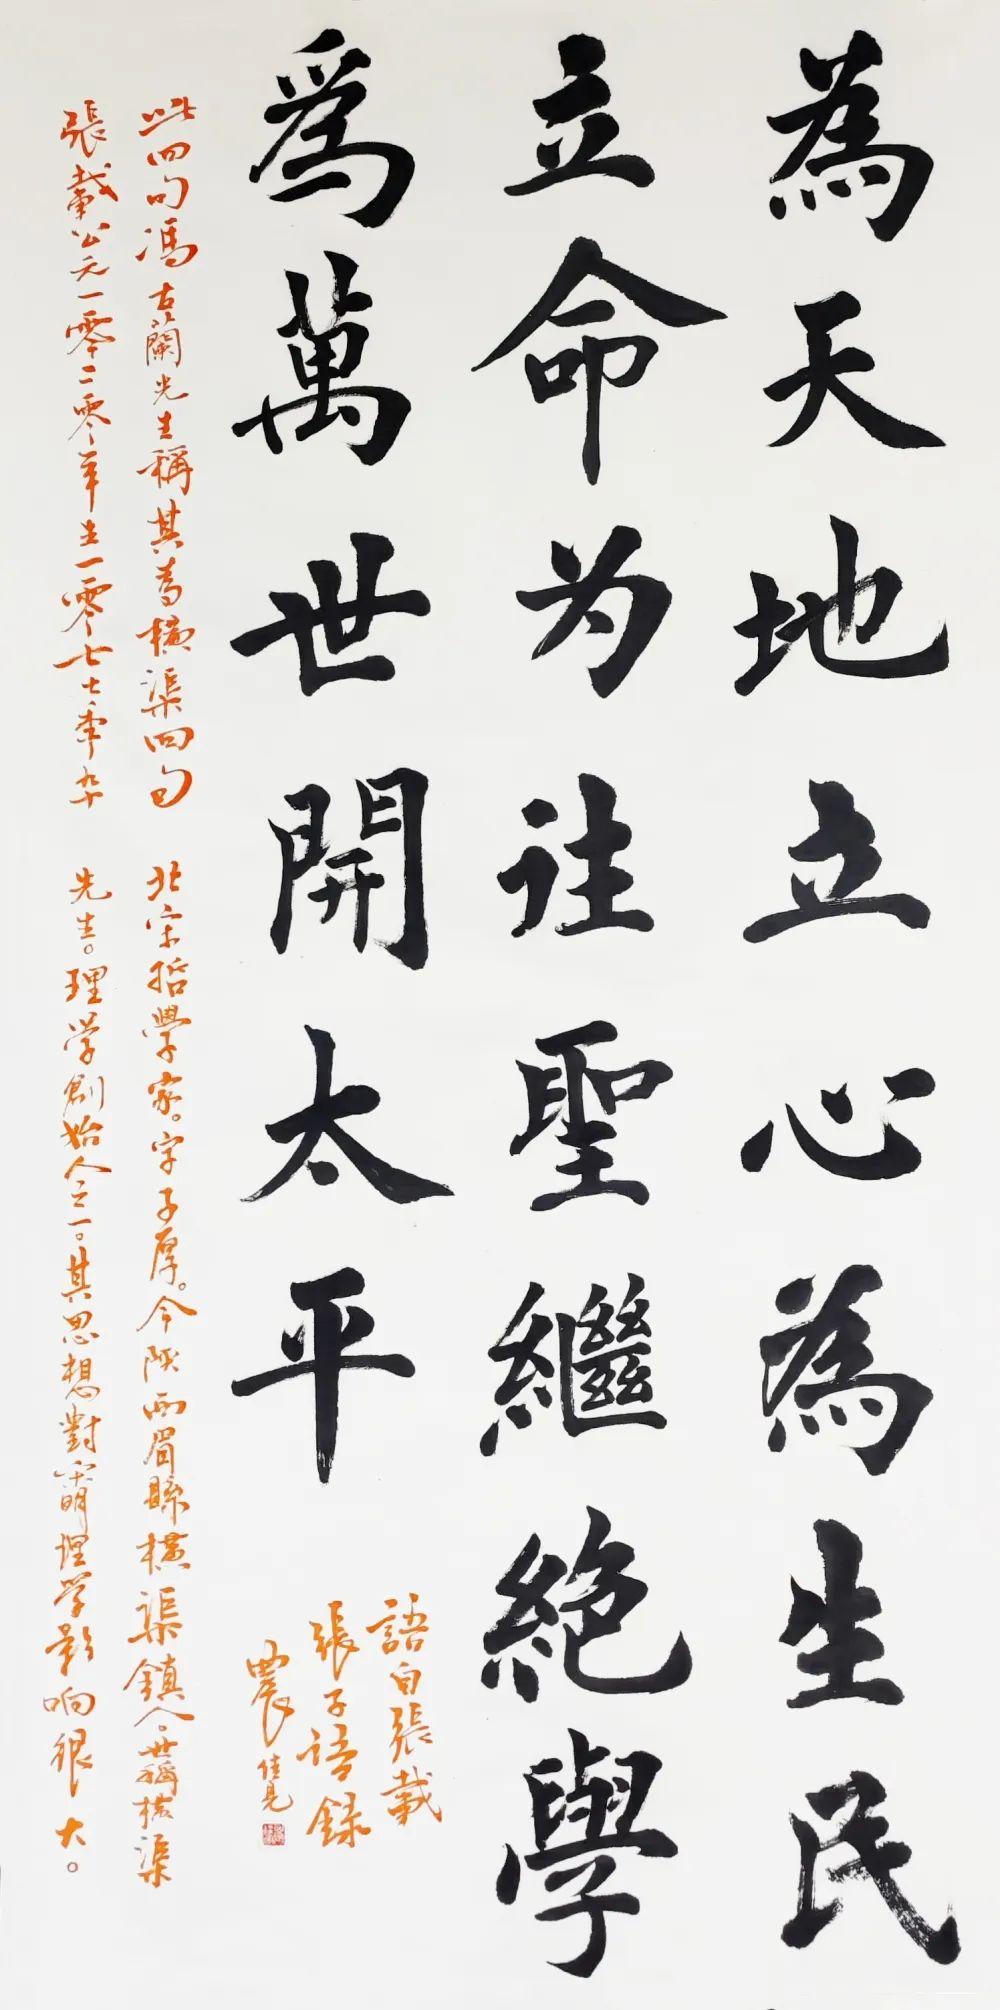 為天地立心為生民
立命为往聖繼絕學
爲萬世開太平
語自張載
張子语録
農
此四句馮古蘭先生稱其為橫渠四句
張載公元一零二零年生一零七七年卒
北宋哲學家。字子厚。今陝西眉縣橫渠鎮人世稱橫渠
先生。理学創始人之一。其思想對宋明理学影响很大。